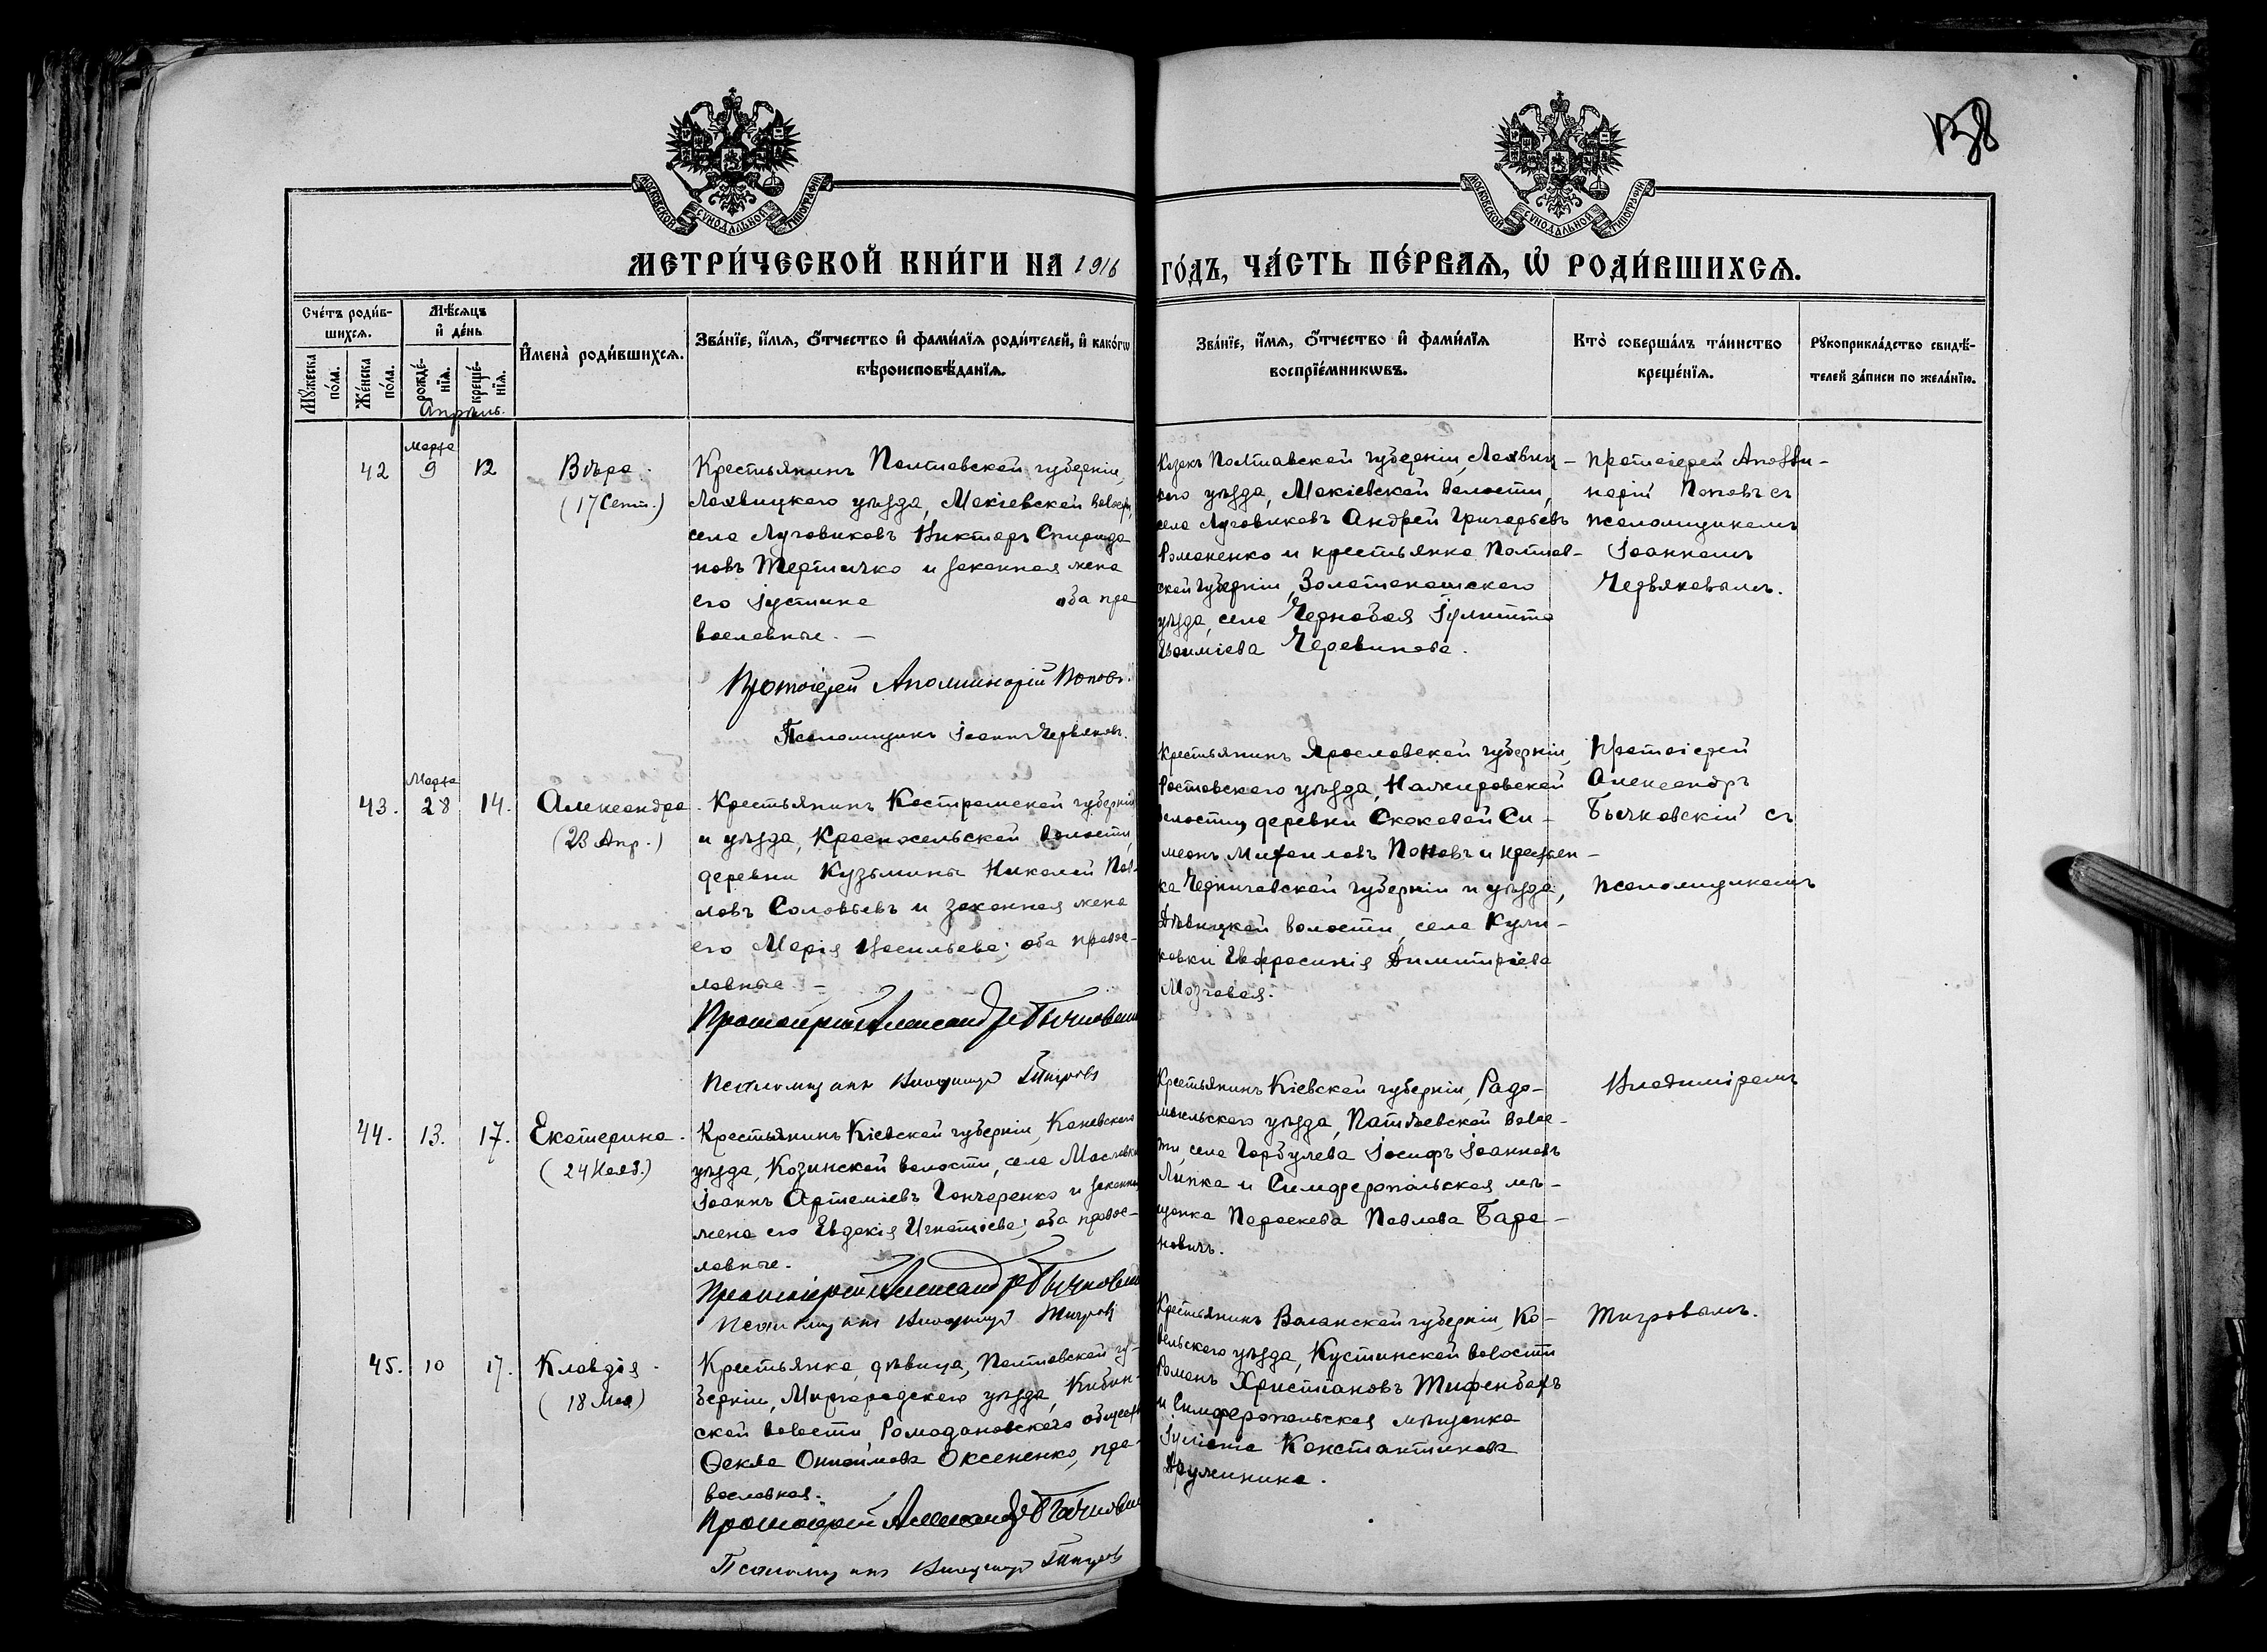 138
МОСКОВСКОЙ СѴНОДАЛЬНОЙ ТИПОГРАФІИ
МОСКОВСКОЙ СѴНОДАЛЬНОЙ ТИПОГРАФІИ
МЕТРИ́ЧЕСКОЙ КНИ́ГИ НА 1916
ГО́ДЪ, ЧА́СТЬ ПЕ́РВАѦ, Ѡ҆ РОДИ́ВШИХСѦ.
Сче́тъ роди́в-
шихсѧ.
Мѣ́сѧцъ
и҆ де́нь
Мꙋ́жеска
по́ла.
Же́нска
по́ла.
рожде́-
нїѧ.
креще́-
нїѧ.
И҆мена̀ роди́вшихсѧ.
Зва́нїе, и҆́мѧ, ѻ҆́тчество и҆ фами́лїѧ роди́телей, и҆ како́гѡ
вѣроисповѣ́данїѧ.
Зва́нїе, и҆́мѧ, ѻ҆́тчество и҆ фами́лїѧ
воспрїе́мникѡвъ.
Кто̀ соверша́лъ та́инство
креще́нїѧ.
Рꙋкоприкла́дство свидѣ́-
телей за́писи по жела́нїю.
Апрѣль.
Марта
42 9 12 Вѣра.
(17 Сент.)
Крестьянинъ Полтавской губерніи,
Лохвицкаго уѣзда, Мокіевской волости,
села Луговиковъ Викторъ Спиридо
новъ Тертичко и законная жена
его Іустина оба пра
вославные. —
Протоіерей Аполлинарій Поповъ.
Псаломщикъ Іоаннъ Червяковъ.
Козакъ Полтавской губерніи, Лохвиц-
каго уѣзда, Мокіевской волости,
села Луговиковъ Андрей Григорьевъ
Романенко и крестьянка Полтав-
ской губерніи, Золотоношскаго
уѣзда, села Чернобая Іулитта
Черевикова.
Протоіерей Аполли-
нарій Поповъ съ
псаломщикомъ
Іоанномъ
Червяковымъ.
Марта
43. 28 14. Александра.
(23 Апр.)
Крестьянинъ Костромской губерніи
и уѣзда, Красносельской волости,
деревни Кузьмины Николай Пав-
ловъ Соловьевъ и законная жена
его Марія Васильева; оба правос-
лавные. —
Протоіерей Александръ Бычковскій
Псаломщикъ Владиміръ Тигровъ
Крестьянинъ Ярославской губерніи,
Ростовскаго уѣзда, Нажировской
волости, деревни Скоковой Си-
меонъ Михаиловъ Поповъ и крестьян-
ка Черниговской губерніи и уѣзда,
Дѣвицкой волости, села Кули-
ковки Евфросинія Димитріева
Мозговая.
Протоіерей
Александръ
Бычковскій съ
псаломщикомъ
44. 13. 17. Екатерина.
(24 Нояб.)
Крестьянинъ Кіевской губерніи, Каневскаго
уѣзда, Козинской волости, села Масловки
Іоаннъ Артеміевъ Гончаренко и законная
жена его Евдокія Игнатіева; оба правос-
лавные.
Протоіерей Александръ Бычковскій
Псаломщикъ Владиміръ Тигровъ
Крестьянинъ Кіевской губерніи, Радо-
мысльскаго уѣзда, Потіевской волос-
ти, села Горбулева Іосифъ Іоанновъ
Липка и Симферопольская мѣ-
щанка Параскева Павлова Бара-
новичъ.
Владиміромъ
45. 10 17. Клавдія.
(18 Мая)
Крестьянка, дѣвица, Полтавской гу-
берніи, Миргородскаго уѣзда, Кибин-
ской волости, Ромодановскаго общества
Ѳекла Онисимова Оксененко, пра-
вославная.
Протоіерей Александръ Бычковскій
Псаломщикъ Владиміръ Тигровъ
Крестьянинъ Волынской губерніи, Ко-
вельскаго уѣзда, Кустинской волости
Романъ Христіановъ Тифенбахъ
и Симферопольская мѣщанка
Іуліанія Константинова
Дружинина.
Тигровымъ.